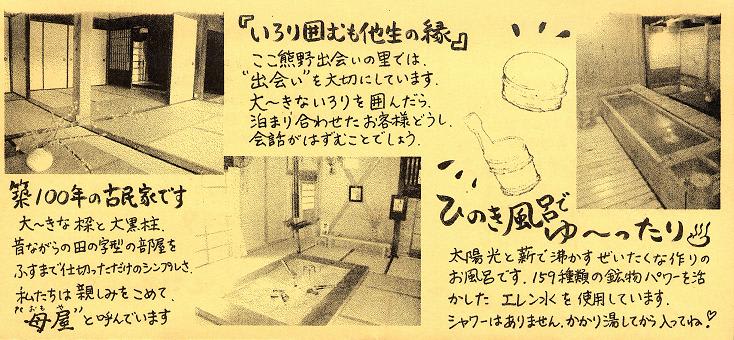 『いろり囲むも他生の縁』
ここ熊野出会いの里では、
"出会い"を大切にしています。
大〜きないろりを囲んだら、
泊まり合わせたお客様どうし、
会話がはずむことでしょう。
築100年の古民家です
大〜きな梁と大黒柱、
昔ながらの田の字型の部屋を
ふすまで仕切っただけのシンプルさ。
私たちは親しみをこめて、
"母屋"と呼んでいます
おもや
ひのき風呂で
ゆ〜ったり♨
太陽光と薪で沸かすぜいたくな作りの
お風呂です。159種類の鉱物パワーを活
かした エレン水を使用しています。
シャワーはありません。かかり湯してから入ってね!♡